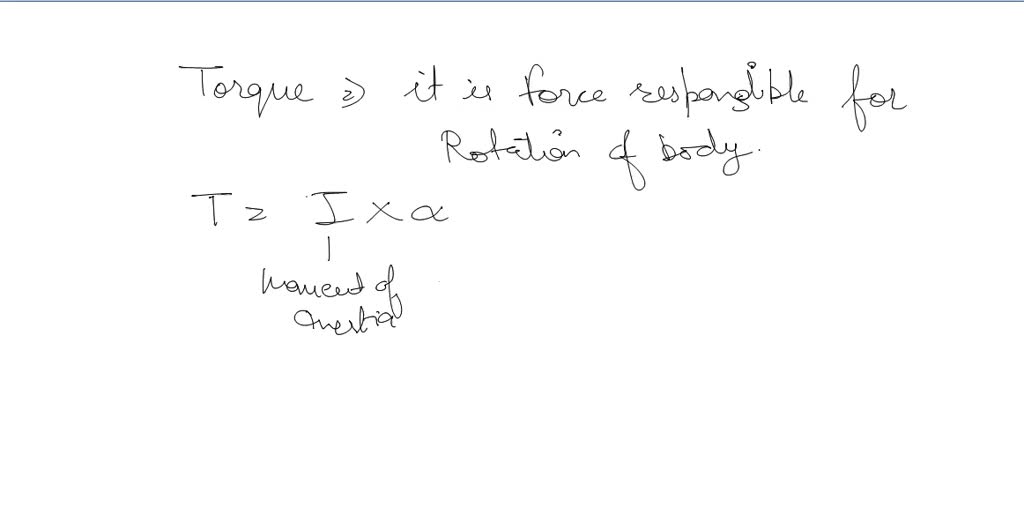 Torque ⇒ it is force responsible for
Rotation of body.
T = I × α
Moment of
Inertia